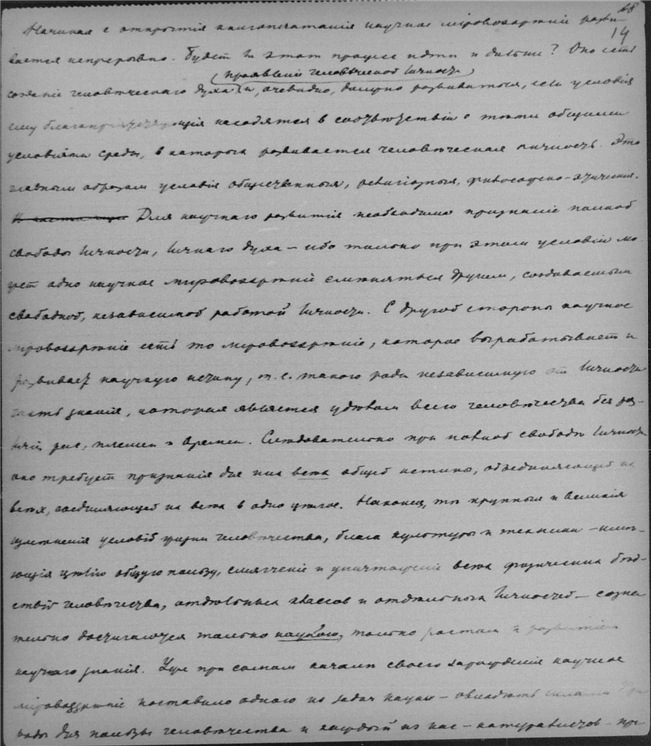 68
14
Начиная с открытія книгопечатанія научное міровоззрѣніе разви-
вается непрерывно. Будетъ ли этотъ процессъ идти и дальше? Оно есть
проявленіе человѣческой личности
созданіе человѣческаго духа и, очевидно, должно развиваться, если условія
ему благопріятствующія находятся в соотвѣтствіи с тѣми общими
условіями среды, в которыхъ развивается человѣческая личность. Это
главнымъ образомъ условія общественныя, религіозныя, философско-этическія.
Для научнаго развитія необходимо признаніе полной
свободы личности, личнаго духа – ибо только при этомъ условіи мо-
жетъ одно научное міровоззрѣніе смѣняться другимъ, создаваемымъ
свободной, независимой работой личности. С другой стороны научное
міровоззрѣніе есть то міровоззрѣніе, которое вырабатываетъ и
развиваетъ научную истину, т.е. такого рода независимую отъ личности
часть знанія, которая является удѣломъ всего человѣчества без раз-
личія рас, племен и времен. Слѣдовательно при полной свободѣ личности
оно требуетъ признанія для нихъ всѣхъ общей истины, объединяющей их
всѣхъ, соединяющей их всѣхъ в одно цѣлое. Наконецъ, тѣ крупныя и великія
измѣненія условій жизни человѣчества, блага культуры и техники – имѣ-
ющія цѣлью общую пользу, смягченіе и уничтоженіе всѣхъ физическихъ бѣд-
ствій человѣчества, отдѣльныхъ классов и отдѣльныхъ личностей – созна-
тельно достигаются только наукою, только ростомъ и развитіемъ
научнаго знанія. Уже при самомъ началѣ своего зарожденія научное
міровоззрѣніе поставило одною из задач науки – овладѣть силами при-
роды для пользы человѣчества и каждый из нас – натуралистов – при